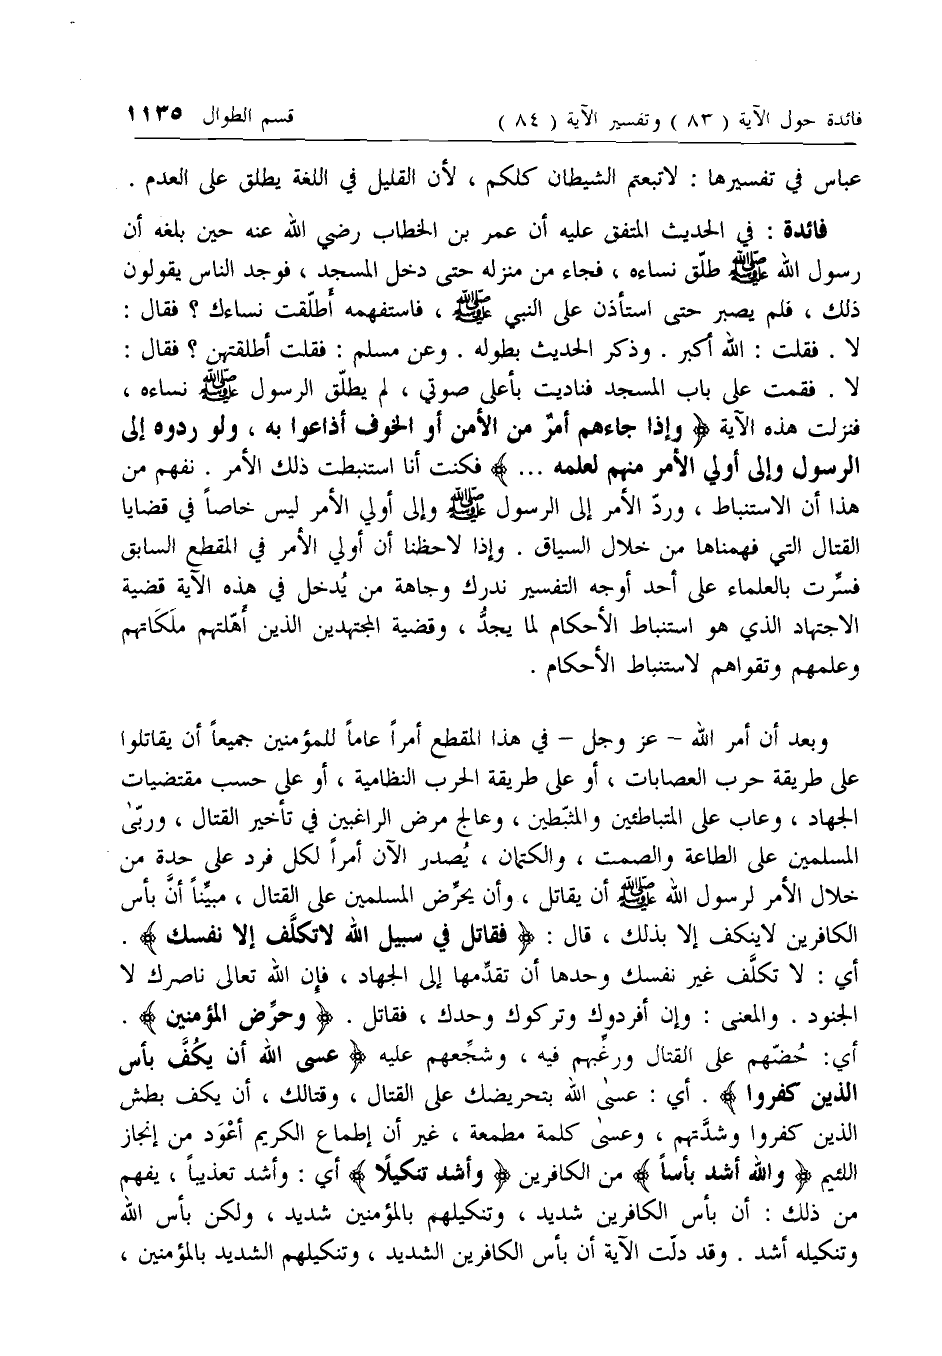 فائدة حول الآية ( ٨٣ ) وتفسير الآية ( ٨٤ ) قسم الطوال ١١٣٥
عباس في تفسيرها : لاتبعتم الشيطان كلكم ، لأن القليل في اللغة يطلق على العدم .
فائدة : في الحديث المتفق عليه أن عمر بن الخطاب رضي الله عنه حين بلغه أن
رسول الله ﷺ طلّق نساءه ، فجاء من منزله حتى دخل المسجد ، فوجد الناس يقولون
ذلك ، فلم يصبر حتى استأذن على النبي ﷺ ، فاستفهمه أَطلّقت نساءك ؟ فقال :
لا . فقلت : الله أكبر . وذكر الحديث بطوله . وعن مسلم : فقلت أطلقتهن ؟ فقال :
لا . فقمت على باب المسجد فناديت بأعلى صوتي ، لم يطلّق الرسول ﷺ نساءه ،
فنزلت هذه الآية ﴿ وإذا جاءهم أمرٌ من الأمن أو الخوف أذاعوا به ، ولو ردوه إلى
الرسول وإلى أولي الأمر منهم لعلمه ... ﴾ فكنت أنا استنبطت ذلك الأمر . نفهم من
هذا أن الاستنباط ، وردّ الأمر إلى الرسول ﷺ وإلى أولي الأمر ليس خاصاً في قضايا
القتال التي فهمناها من خلال السياق . وإذا لاحظنا أن أولي الأمر في المقطع السابق
فسِّرت بالعلماء على أحد أوجه التفسير ندرك وجاهة من يُدخل في هذه الآية قضية
الاجتهاد الذي هو استنباط الأحكام لما يجدُّ ، وقضية المجتهدين الذين أَهّلتهم ملَكَاتهم
وعلمهم وتقواهم لاستنباط الأحكام .
وبعد أن أمر الله – عز وجل – في هذا المقطع أمراً عاماً للمؤمنين جميعاً أن يقاتلوا
على طريقة حرب العصابات ، أو على طريقة الحرب النظامية ، أو على حسب مقتضيات
الجهاد ، وعاب على المتباطئين والمثبّطين ، وعالج مرض الراغبين في تأخير القتال ، وربّىٰ
المسلمين على الطاعة والصمت ، والكتمان ، يُصدر الآن أمراً لكل فرد على حدة من
خلال الأمر لرسول الله ﷺ أن يقاتل ، وأن يحرِّض المسلمين على القتال ، مبيِّناً أنَّ بأس
الكافرين لاينكف إلا بذلك ، قال : ﴿ فقاتل في سبيل الله لاتكلَّف إلا نفسك ﴾ .
أي : لا تكلَّف غير نفسك وحدها أن تقدِّمها إلى الجهاد ، فإن الله تعالى ناصرك لا
الجنود . والمعنى : وإن أفردوك وتركوك وحدك ، فقاتل . ﴿ وحرِّض المؤمنين ﴾ .
أي: حُضّهم على القتال ورغِّبهم فيه ، وشجِّعهم عليه ﴿ عسى الله أن يكُفَّ بأس
الذين كفروا ﴾ . أي : عسىٰ الله بتحريضك على القتال ، وقتالك ، أن يكف بطش
الذين كفروا وشدَّتهم ، وعسىٰ كلمة مطمعة ، غير أن إطماع الكريم أعْوَد من إنجاز
اللئيم ﴿ والله أشد بأساً ﴾ من الكافرين ﴿ وأشد تنكيلًا ﴾ أي : وأشد تعذيباً ، يفهم
من ذلك : أن بأس الكافرين شديد ، وتنكيلهم بالمؤمنين شديد ، ولكن بأس الله
وتنكيله أشد . وقد دلّت الآية أن بأس الكافرين الشديد ، وتنكيلهم الشديد بالمؤمنين ،